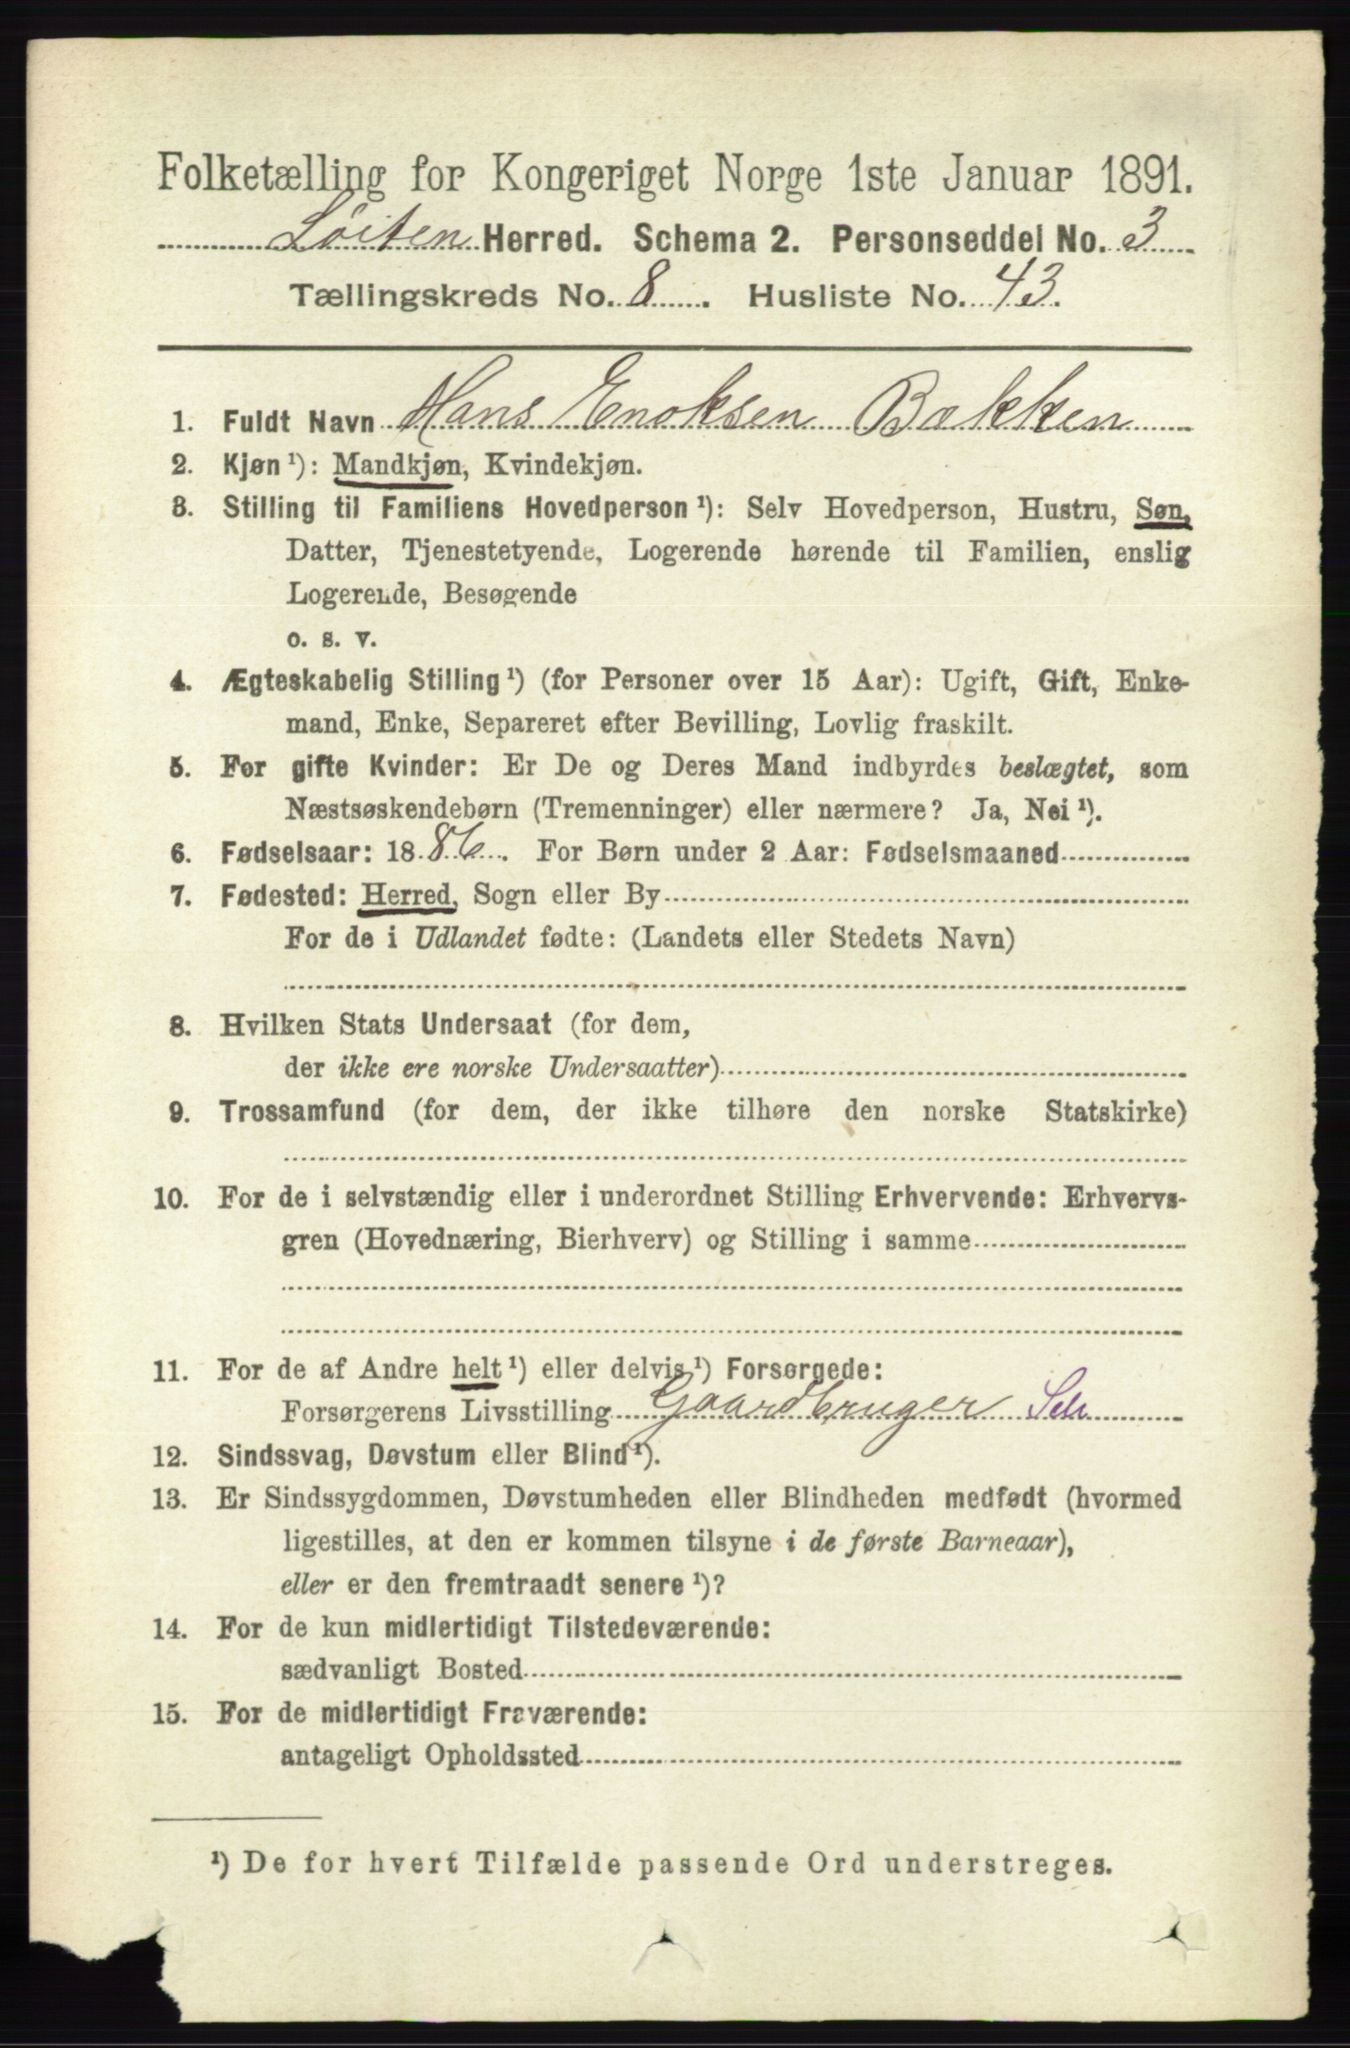 Folketælling for Kongeriget Norge 1ste Januar 1891.
Løiten Herred. Schema 2. Personseddel No. 3
Tællingskreds No. 8. Husliste No. 43.
1. Fuldt Navn Hans Enoksen Bakken
2. Kjøn¹): Mandkjøn, Kvindekjøn.
3. Stilling til Familiens Hovedperson¹): Selv Hovedperson, Hustru, Søn,
Datter, Tjenestetyende, Logerende hørende til Familien, enslig
Logerende, Besøgende
o. s. v.
4. Ægteskabelig Stilling¹) (for Personer over 15 Aar): Ugift, Gift, Enke-
mand, Enke, Separeret efter Bevilling, Lovlig fraskilt.
5. For gifte Kvinder: Er De og Deres Mand indbyrdes beslægtet, som
Næstsøskendebørn (Tremenninger) eller nærmere? Ja, Nei¹).
6. Fødselsaar: 1886. For Børn under 2 Aar: Fødselsmaaned
7. Fødested: Herred, Sogn eller By
For de i Udlandet fødte: (Landets eller Stedets Navn)
8. Hvilken Stats Undersaat (for dem,
der ikke ere norske Undersaatter)
9. Trossamfund (for dem, der ikke tilhøre den norske Statskirke)
10. For de i selvstændig eller i underordnet Stilling Erhvervende: Erhvervs-
gren (Hovednæring, Bierhverv) og Stilling i samme
11. For de af Andre helt¹) eller delvis¹) Forsørgede:
Forsørgerens Livsstilling Gaardbruger
12. Sindssvag, Døvstum eller Blind¹).
13. Er Sindssygdommen, Døvstumheden eller Blindheden medfødt (hvormed
ligestilles, at den er kommen tilsyne i de første Barneaar),
eller er den fremtraadt senere¹)?
14. For de kun midlertidigt Tilstedeværende:
sædvanligt Bosted
15. For de midlertidigt Fraværende:
antageligt Opholdssted
¹) De for hvert Tilfælde passende Ord understreges.